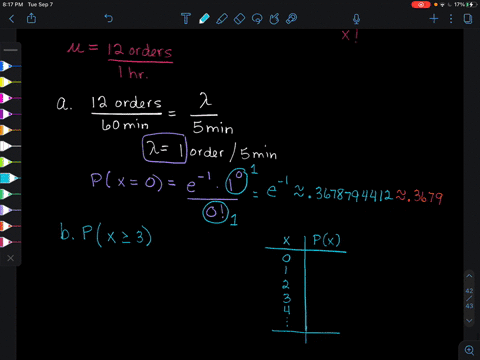 8:17 PM Tue Sep 7
17%
x!
μ = 12 orders / 1 hr.
a. 12 orders / 60 min = λ / 5 min
λ = 1 order / 5 min
P(x = 0) = e⁻¹ · 1⁰ / 0! 1 1 = e⁻¹ ≈ .3678794412 ≈ .3679
b. P(x ≥ 3)
x P(x)
0
1
2
3
4
⋮
42
43